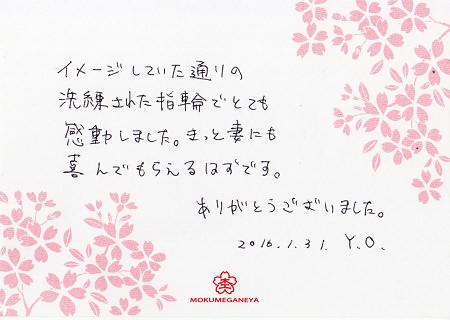 イメージしていた通りの
洗練された指輪でとても
感動しました。きっと妻にも
喜んでもらえるはずです。
ありがとうございました。
2016.1.31. Y.O.
MOKUMEGANEYA